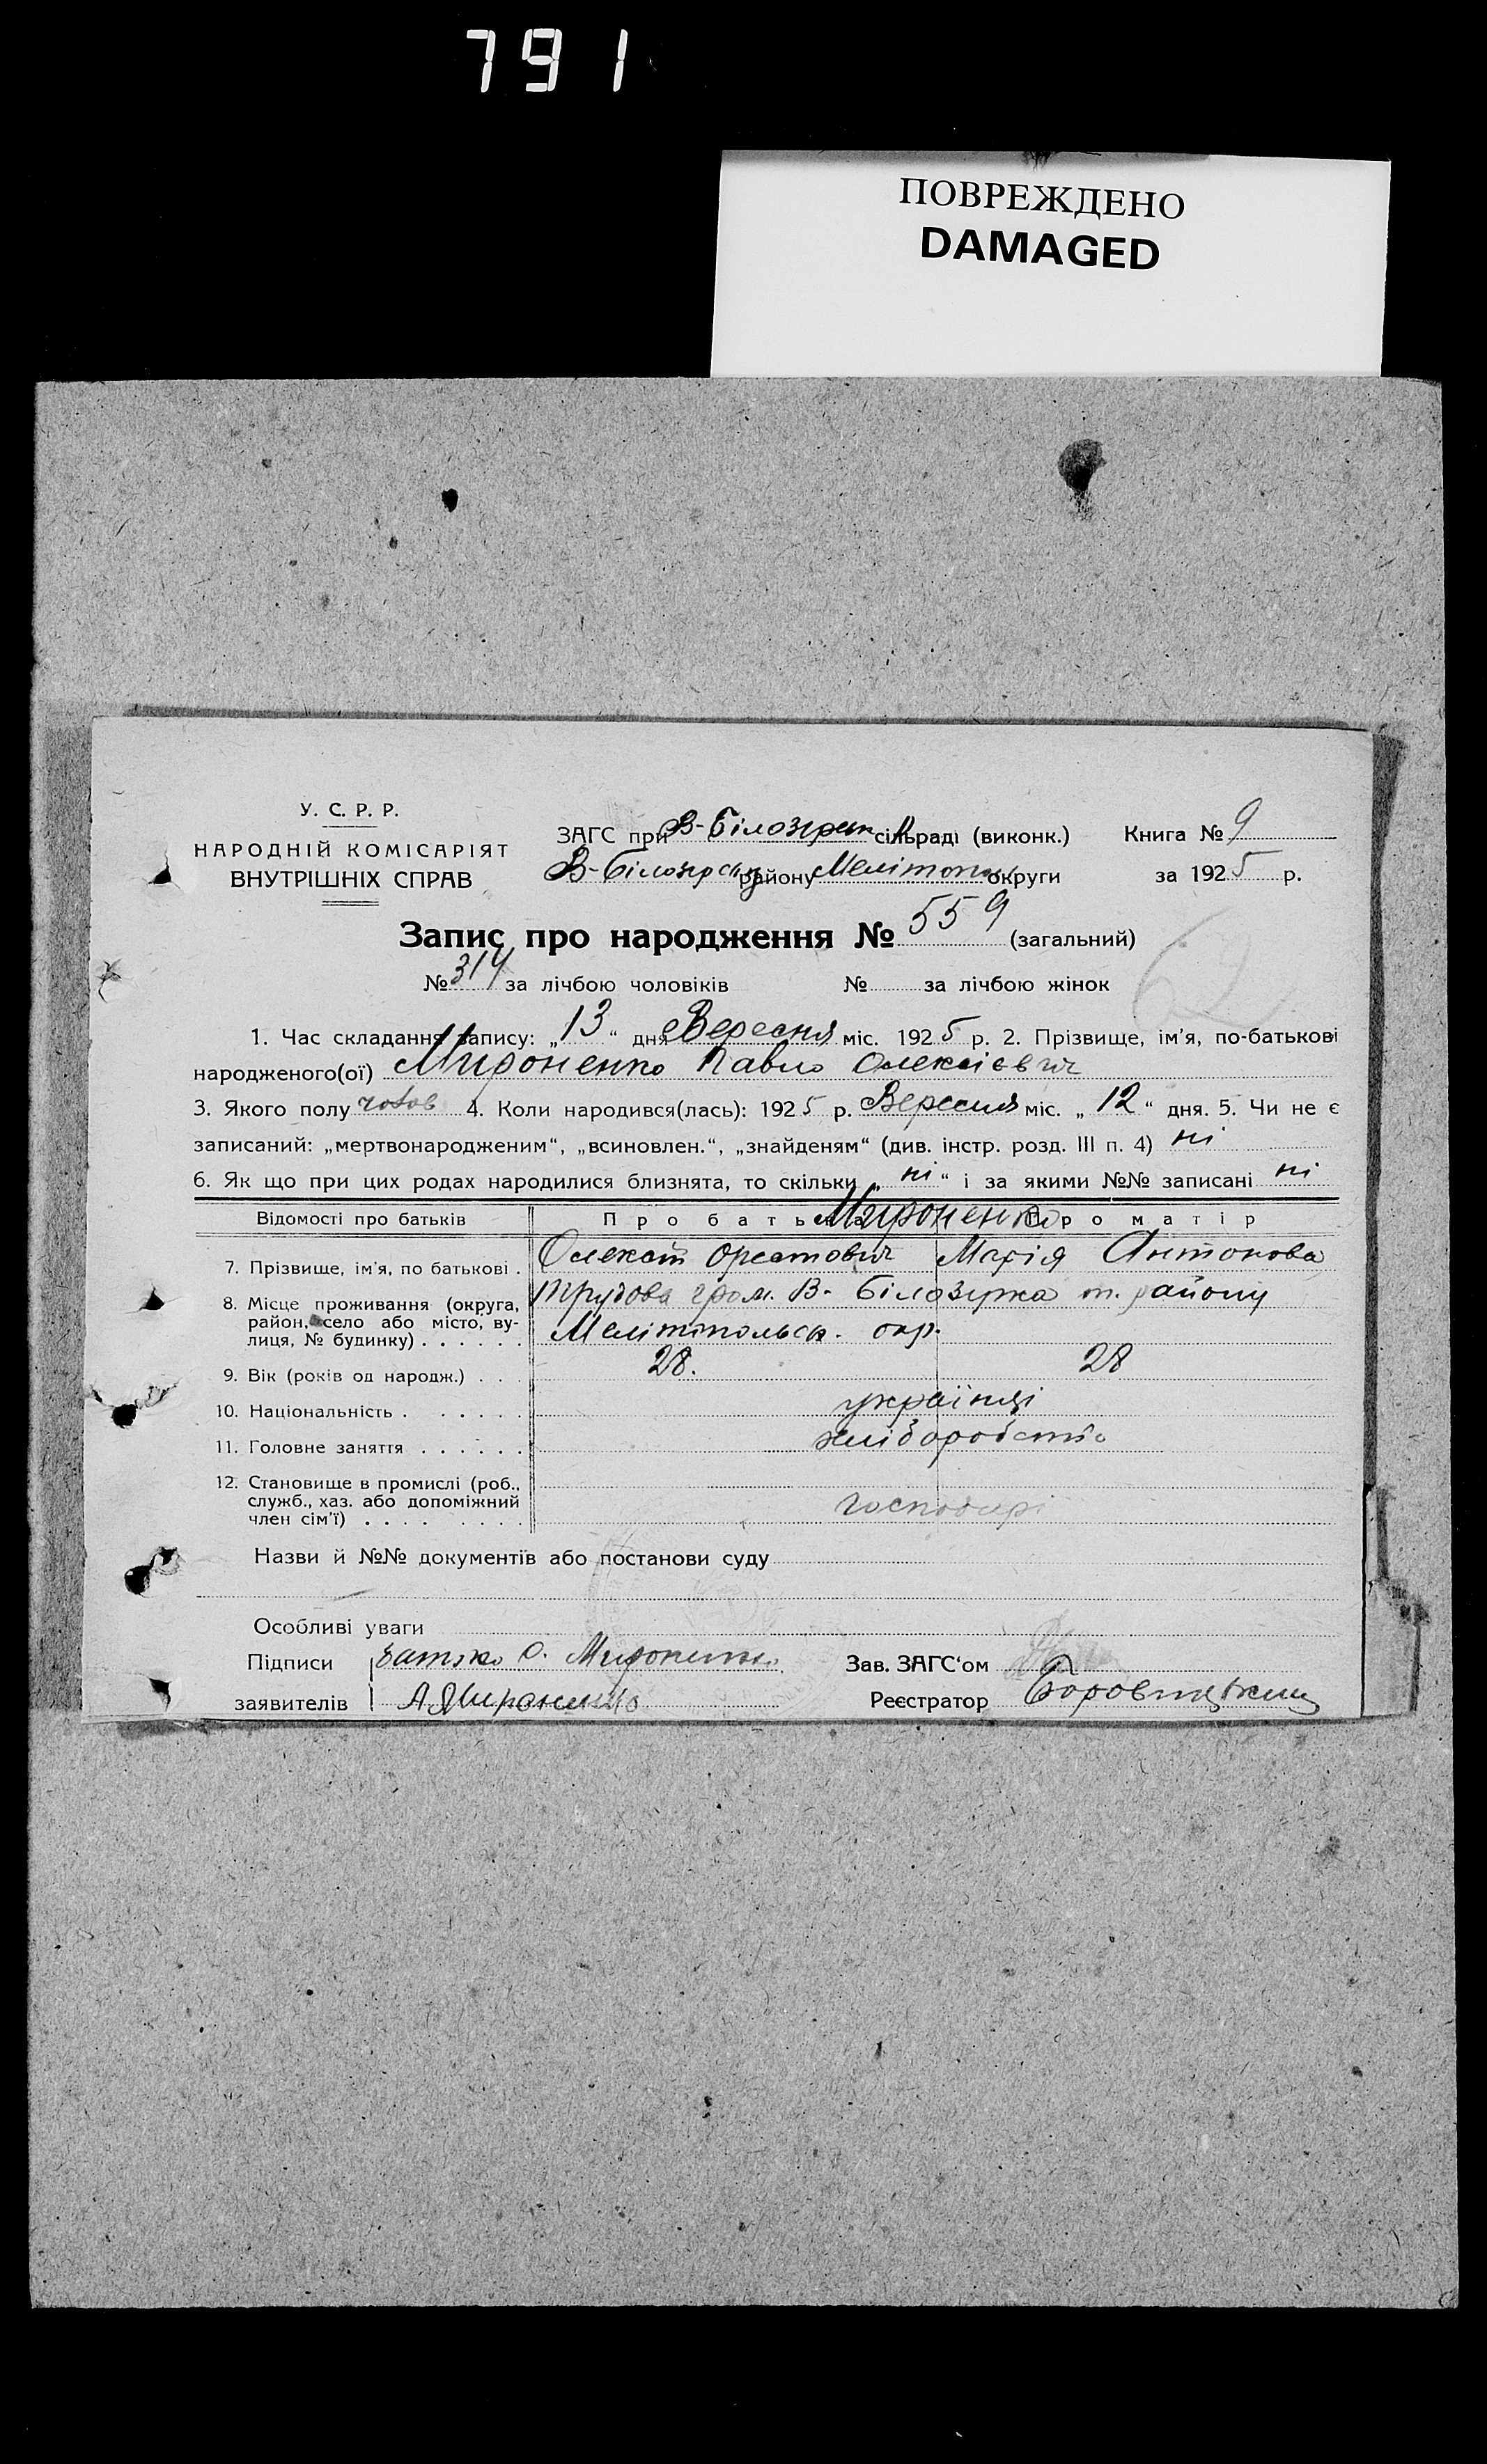 791
ПОВРЕЖДЕНО
DAMAGED
У. С. Р. Р.
НАРОДНІЙ КОМІСАРІЯТ
ВНУТРІШНІХ СПРАВ
ЗАГС при В-Білозірськ сільраді (виконк.)
В-Білозірськ району Мелітоп округи
Книга № 9
за 1925 р.
Запис про народження № 559 (загальний)
№ 314 за лічбою чоловіків № за лічбою жінок
62
1. Час складання запису: „13“ дня Вересня міс. 1925 р. 2. Прізвище, ім'я, по-батькові
народженого(ої) Мироненко Павло Олексієвич
3. Якого полу чолов 4. Коли народився(лась): 1925 р. Вересня міс. „12“ дня. 5. Чи не є
записаний: „мертвонародженим“, „всиновлен.“, „знайденям“ (див. інстр. розд. III п. 4) ні
6. Як що при цих родах народилися близнята, то скільки „ні“ і за якими №№ записані ні
Відомості про батьків Про батька Про матір
Мироненко
7. Прізвище, ім'я, по батькові . Олексій Орестович Марія Антонова
8. Місце проживання (округа, район, село або місто, вулиця, № будинку) . . . . . .
Трудова гром. В-Білозірка т. району
Мелітопольськ. окр.
9. Вік (років од народж.) . . . 28. 28
10. Національність . . . . . . українці
11. Головне заняття . . . . . . хліборобство
12. Становище в промислі (роб.,
служб., хаз. або допоміжний
член сім'ї) . . . . . . . . господарі
Назви й №№ документів або постанови суду
Особливі уваги
Підписи батько О. Мироненко
заявителів А Мироненко
Зав. ЗАГС'ом
Реєстратор Боровицький